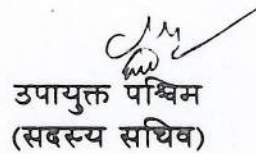 उपायुक्त पश्चिम
(सदस्य सचिव)